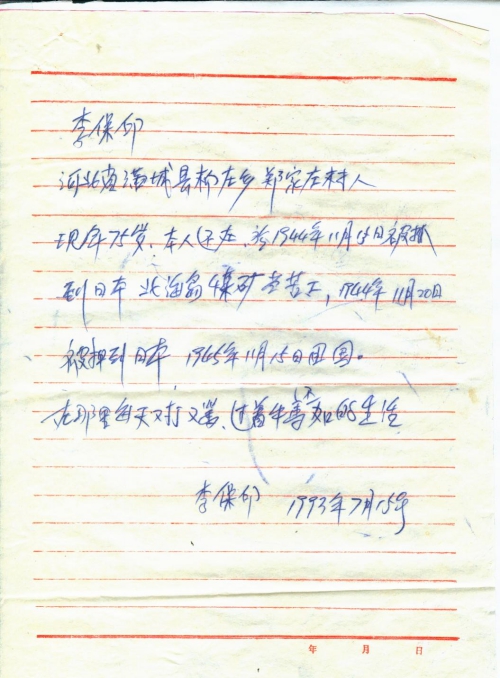 李保印
河北省满城县杨庄乡郑家庄村人
现年75岁、本人还在、于1944年11月15日被抓
到日本北海岛煤矿当苦工,1944年11月20日
被押到日本 1945年11月15日回国。
在那里每天又打又骂、过着牛畜不如的生活
李保印 1993年7月15号
年 月 日